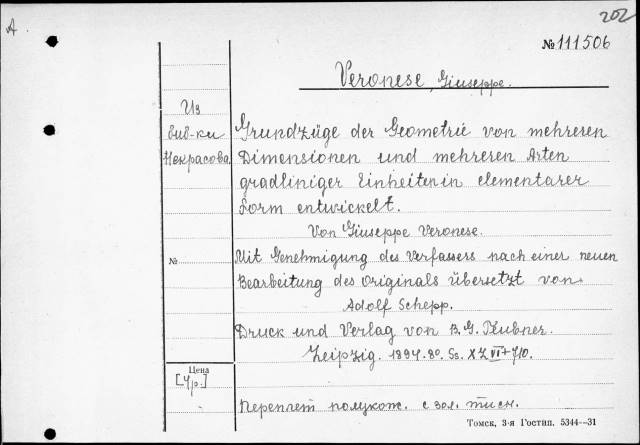 A.
202
№ 111506
Veronese, Giuseppe.
Из
биб-ки
Некрасова.
Grundzüge der Geometrie von mehreren
Dimensionen und mehreren Arten
gradliniger Einheiten in elementarer
Form entwickelt.
Von Giuseppe Veronese.
№
Mit Genehmigung des Verfassers nach einer neuen
Bearbeitung des Originals übersetzt von
Adolf Schepp.
Druck und Verlag von B. G. Teubner.
Leipzig. 1894. 80. Ss. XL VI + 710.
Цена
[4 р.]
Переплет полукож. с зол. тисн.
Томск, 3-я Гостип. 5344—31